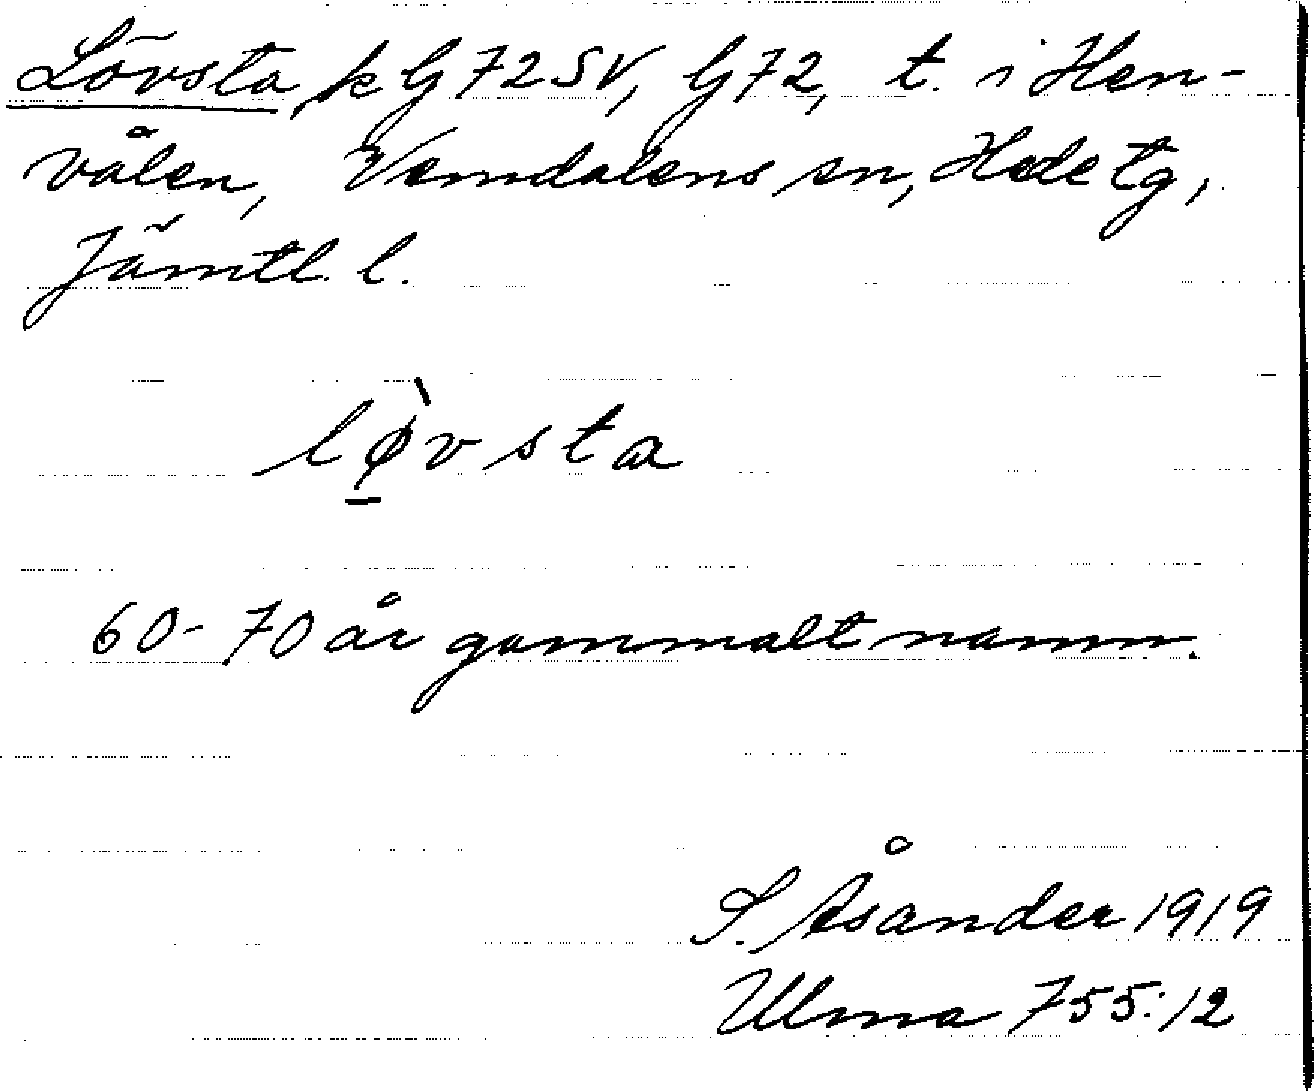 Lövsta, k G 72 SV, G 72, t. i Hen-
vålen, Vemdalens sn, Hede tg,
Jämtl. l.
lø̱̀vsta
60-70 år gammalt namn.
S. Åsander 1919
Ulma 755:12